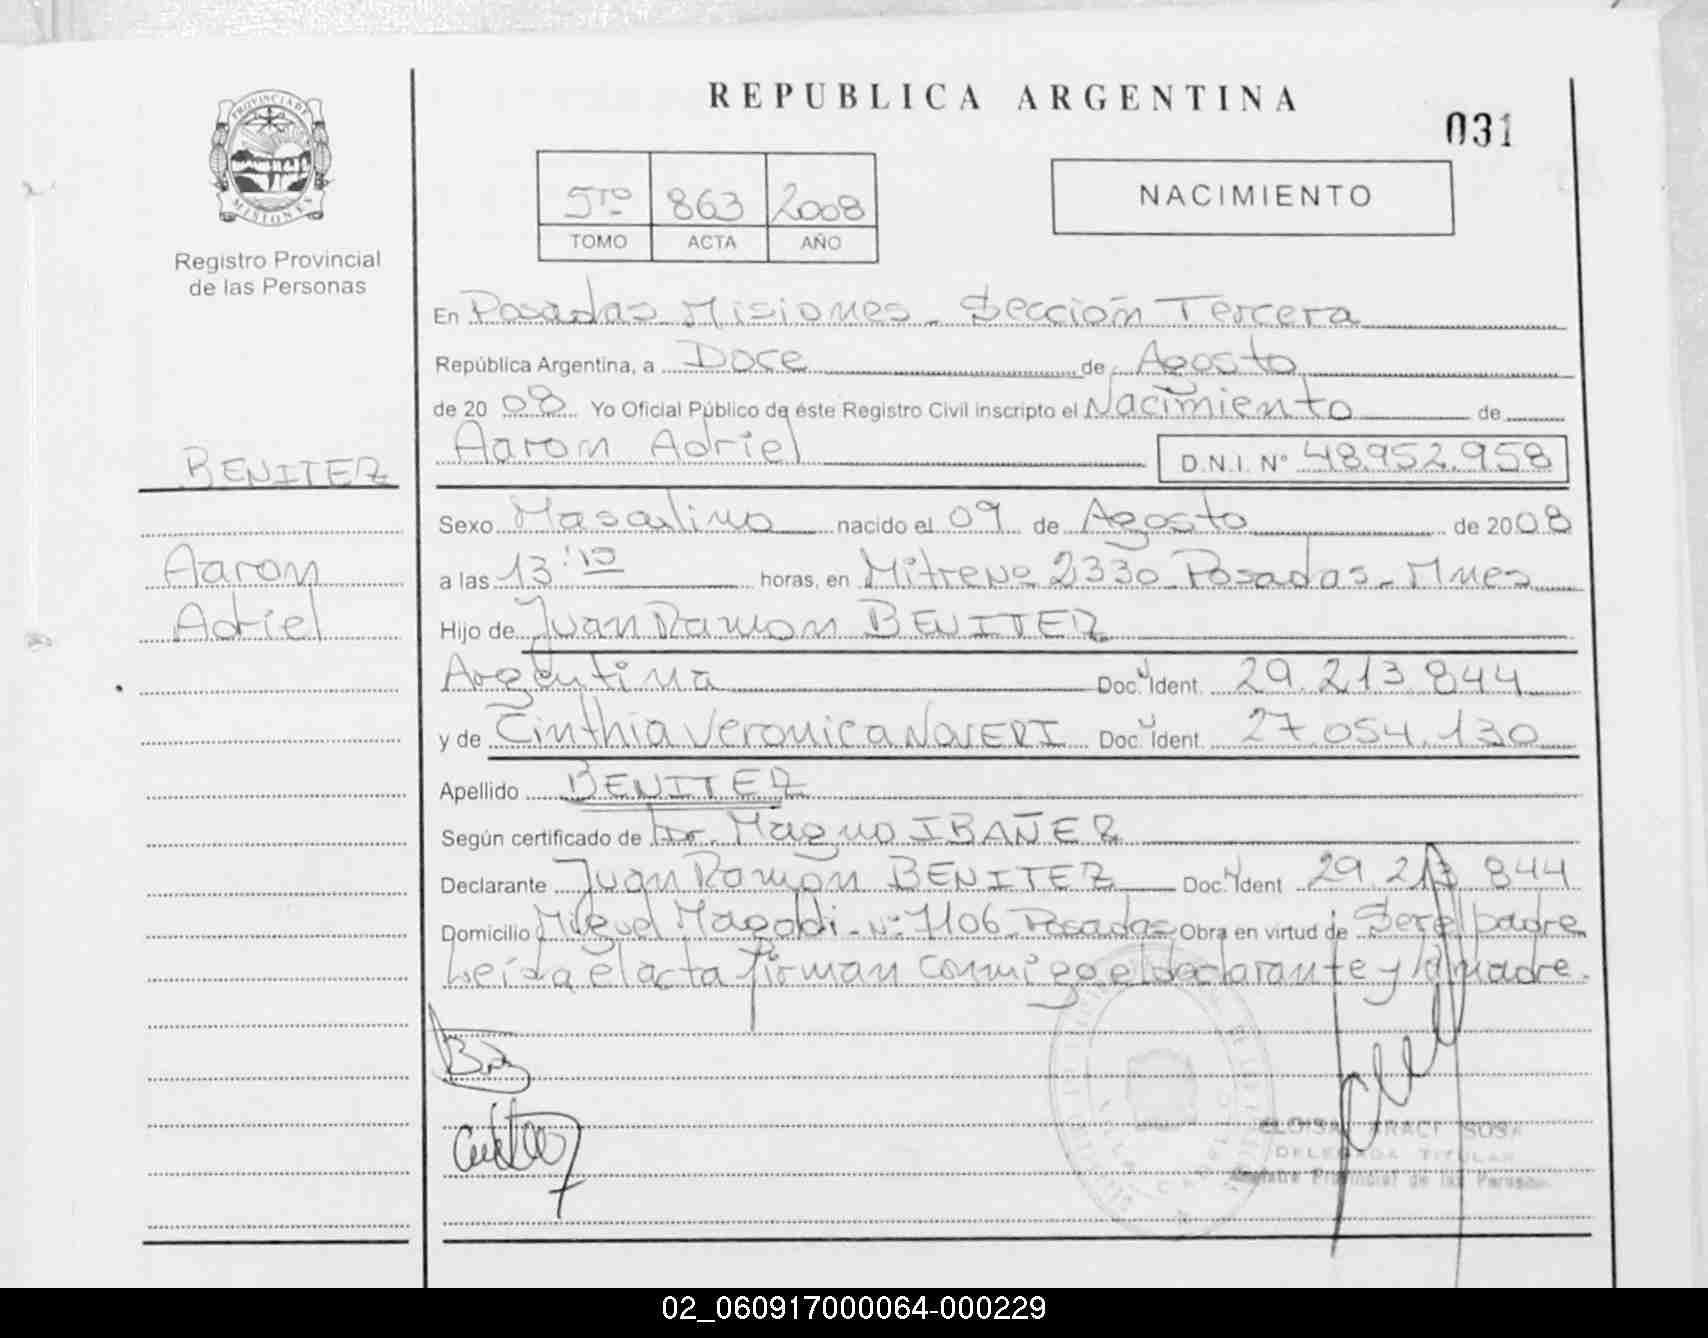 REPUBLICA ARGENTINA
031
PROVINCIA DE
MISIONES
Registro Provincial
de las Personas
5TO 863 2008
TOMO ACTA AÑO
NACIMIENTO
En Posadas Misiones - Sección Tercera
República Argentina, a Doce de Agosto
de 2008 Yo Oficial Público de éste Registro Civil inscripto el Nacimiento de
Aaron Adriel D.N.I. Nº 48.952.958
BENITEZ
Aaron
Adriel
Sexo Masculino nacido el 09 de Agosto de 2008
a las 13:10 horas, en Mitre Nº 2330 Posadas - Mnes
Hijo de Juan Ramon BENITEZ
Argentina Doc. Ident. 29.213.844
y de Cinthia Veronica Doc. Ident. 27.054.130
Apellido BENITEZ
Según certificado de Dr. Magno IBAÑEZ
Declarante Juan Ramón BENITEZ Doc. Ident 29.213.844
Domicilio Miguel Magaldi - Nº 7106 - Posadas Obra en virtud de Ser el padre
Leída el acta firman conmigo el declarante y la madre.
ELOISA ARACI SOSA
DELEGADA TITULAR
Registro Provincial de las Personas
02_060917000064-000229